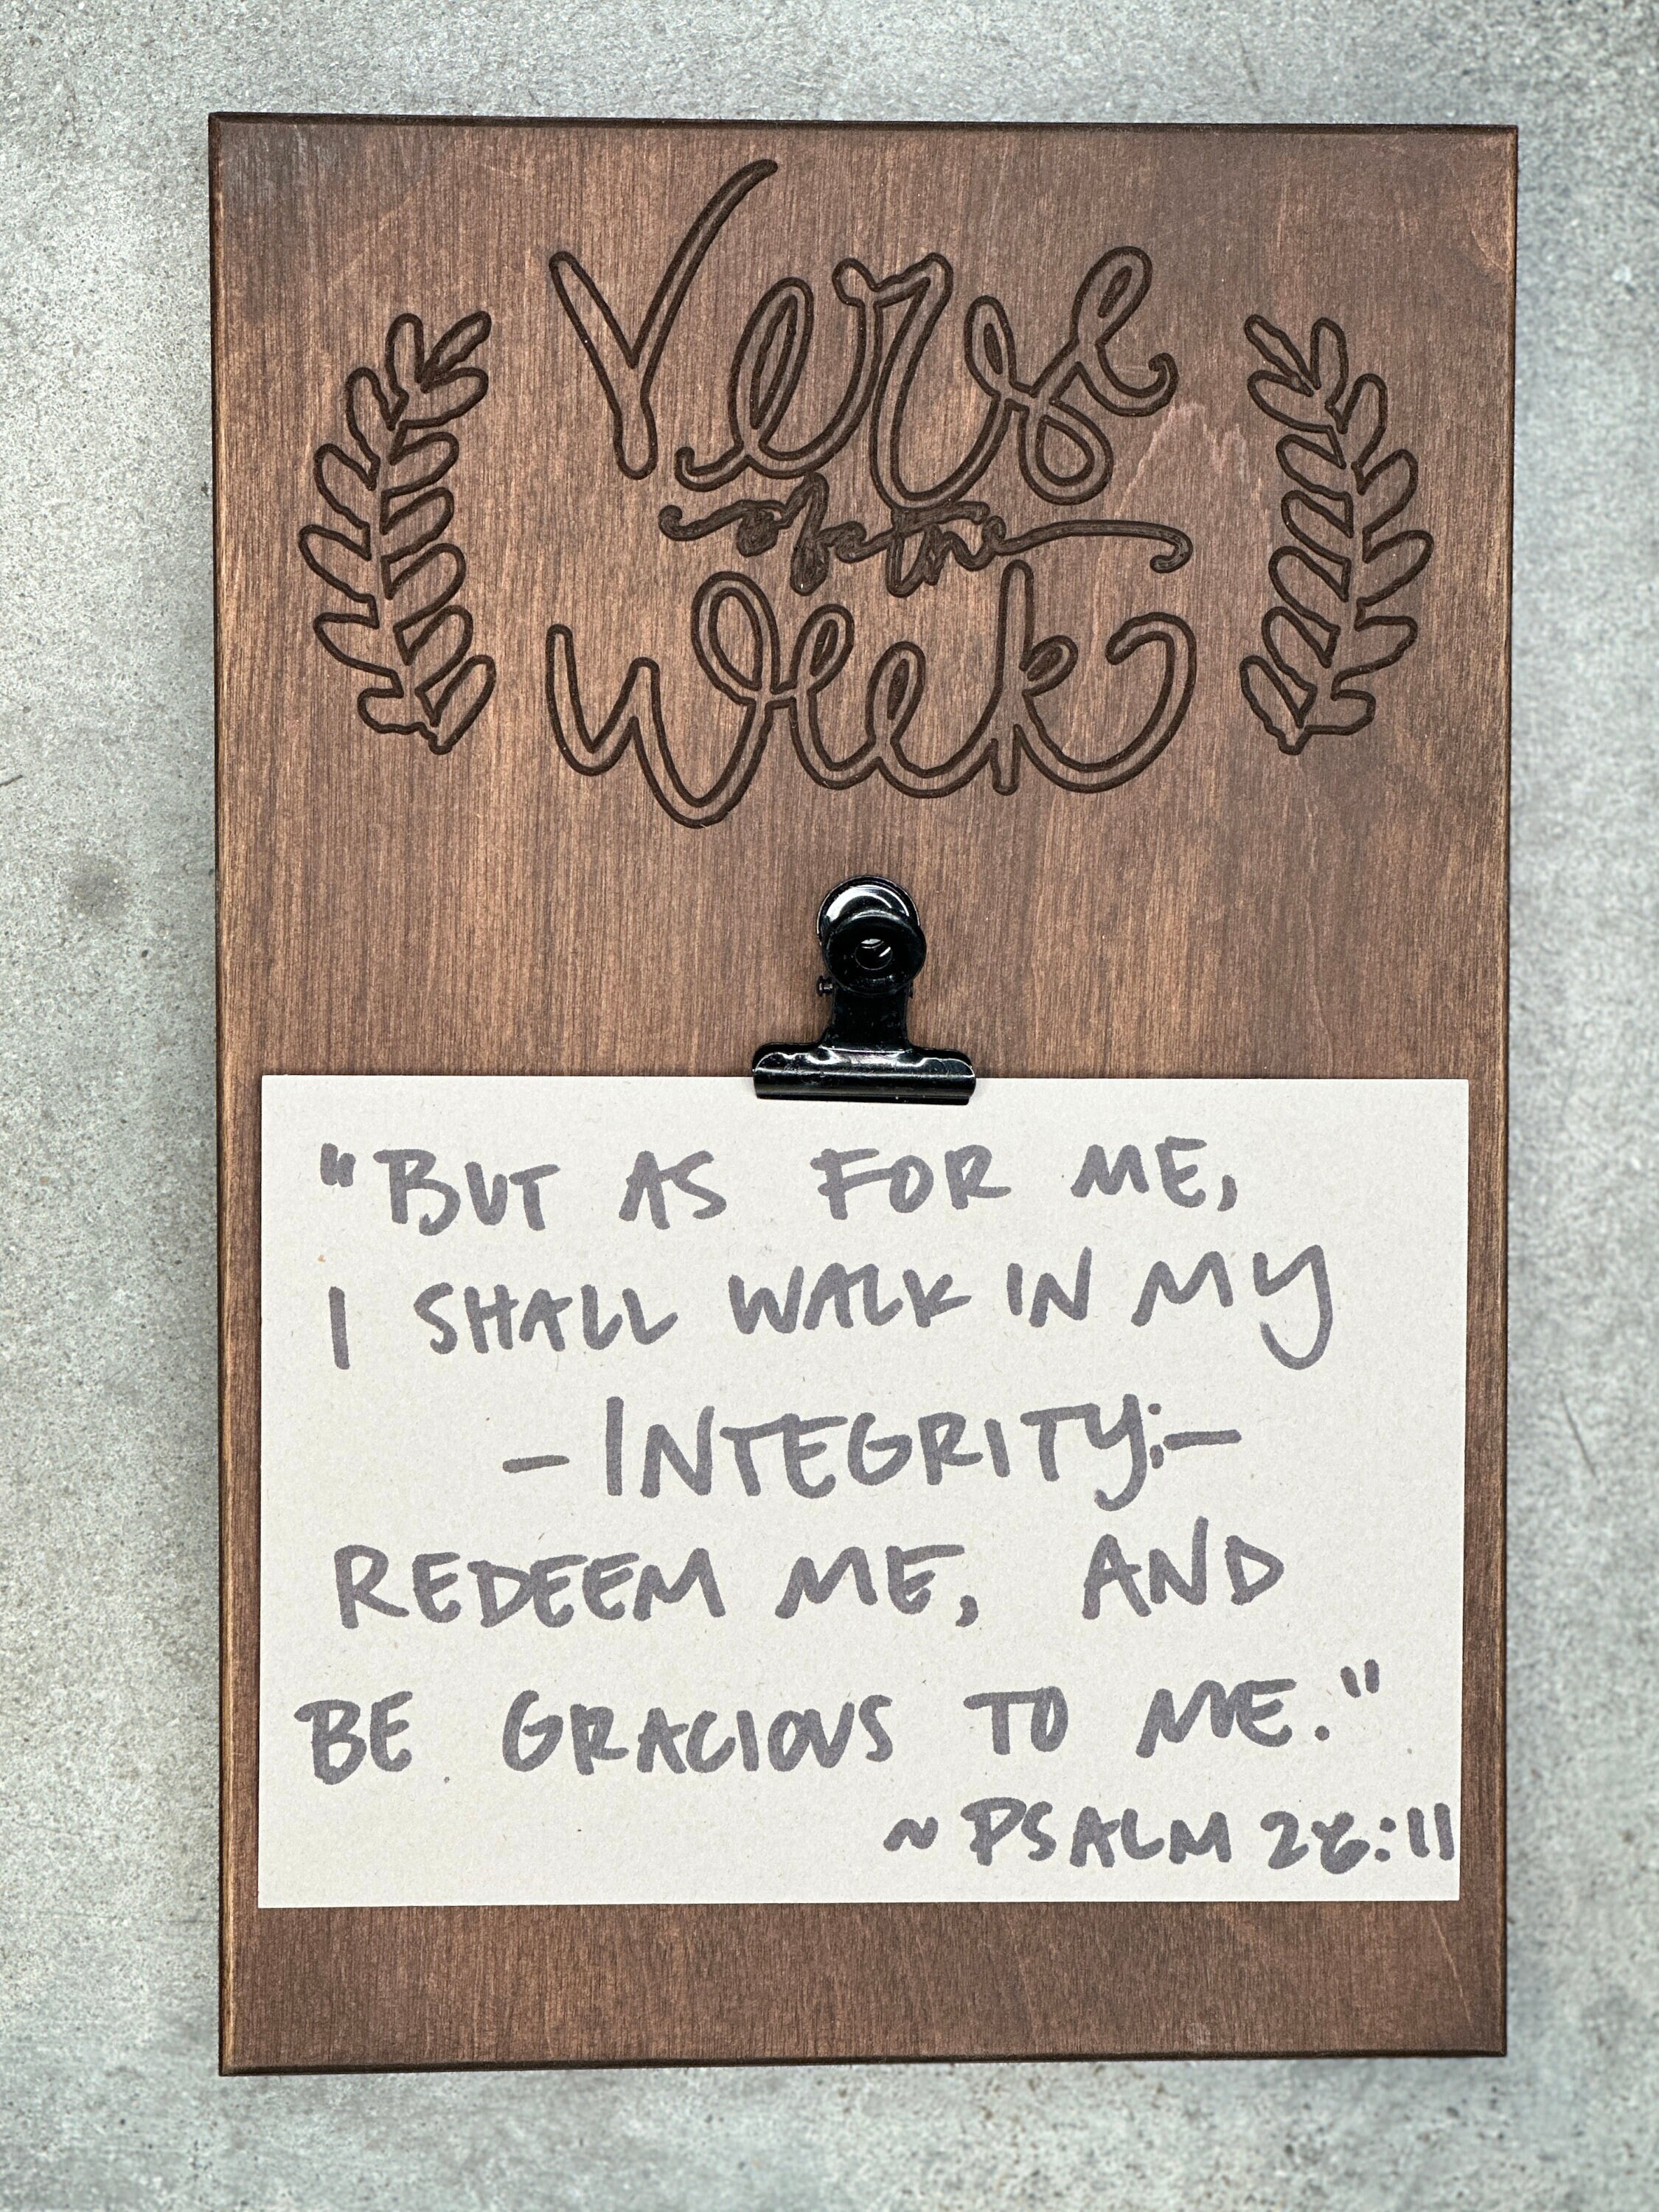 Verse
of the
Week
"BUT AS FOR ME,
I SHALL WALK IN MY
- INTEGRITY; -
REDEEM ME, AND
BE GRACIOUS TO ME."
~ PSALM 26:11